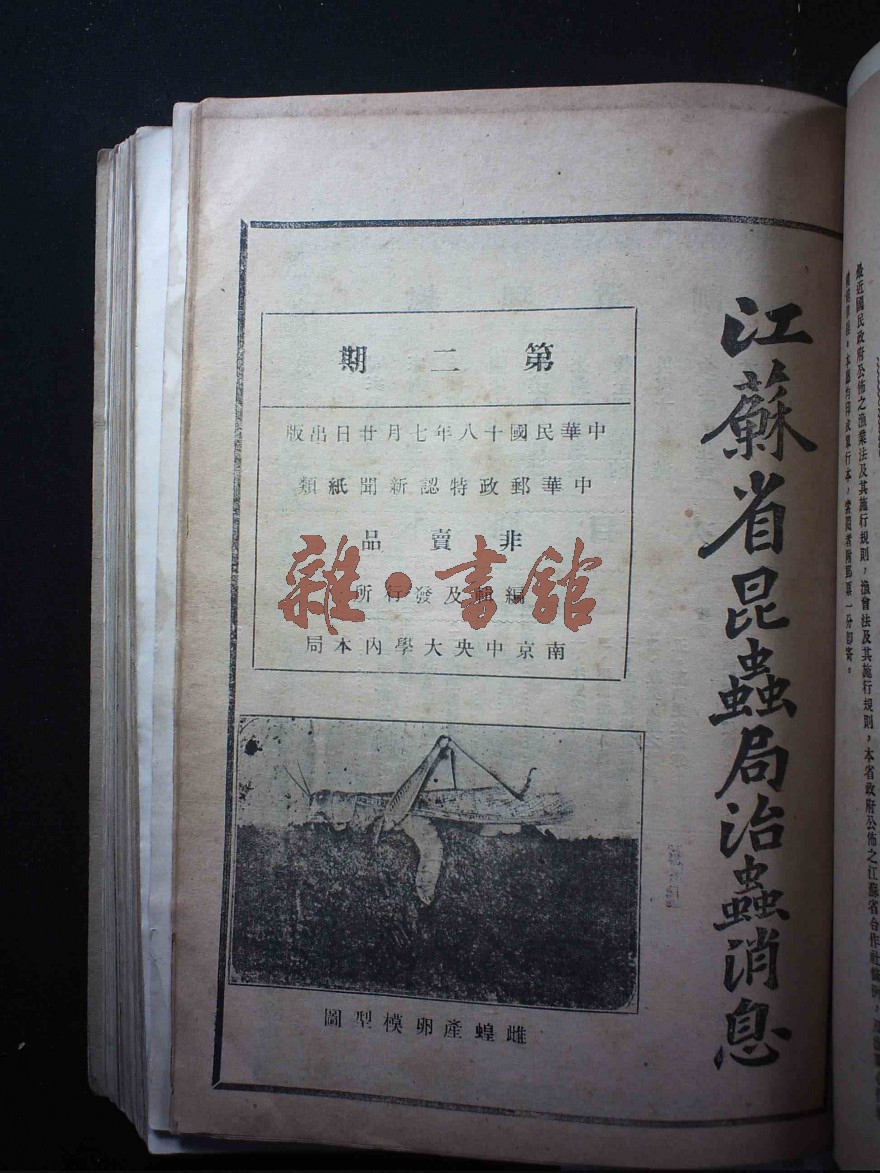 江蘇省昆蟲局治蟲消息
第二期
中華民國十八年七月廿日出版
中華郵政特認新聞紙類
非賣品
編輯及發行所
南京中央大學內本局
雌蝗產卵模型圖
雜·書館
最近國民政府公佈之漁業法及其施行規則，漁會法及其施行規則，本省政府公佈之江蘇省合作社